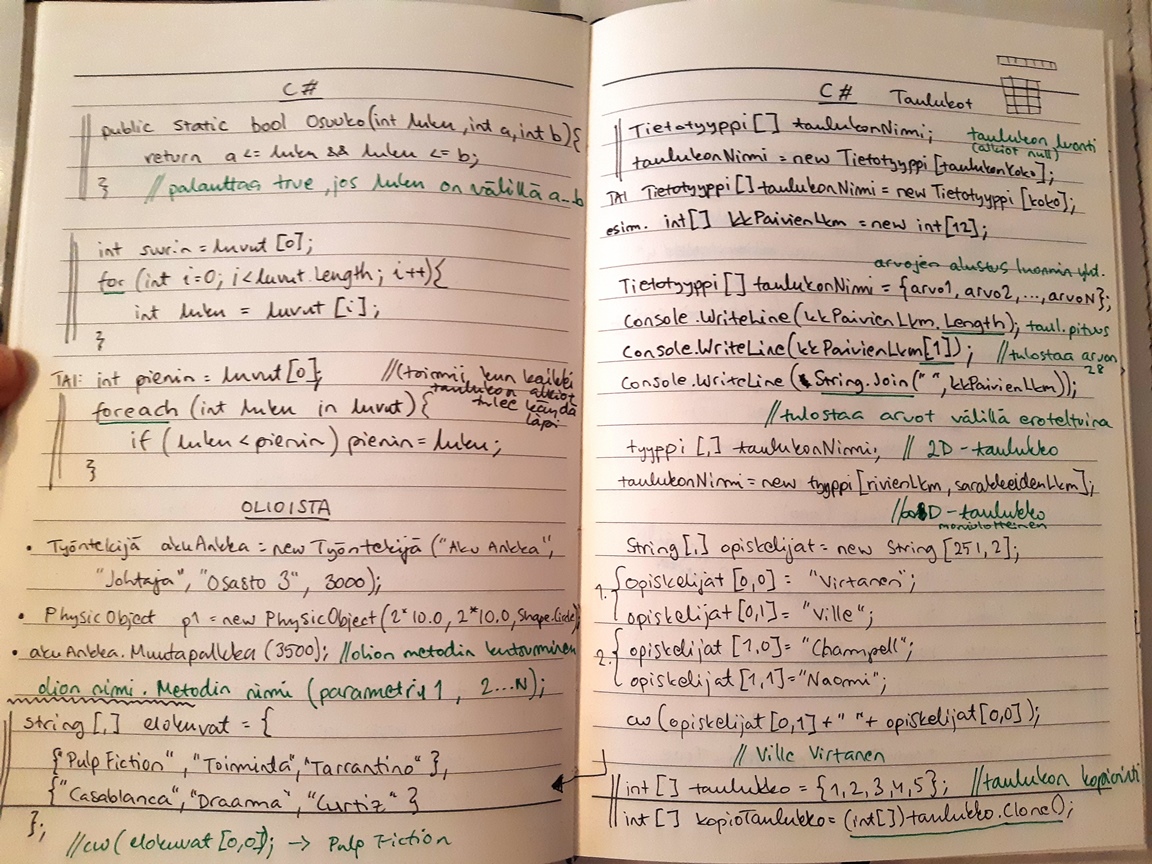 C#
public static bool Osuuko(int luku, int a, int b){
return a <= luku && luku <= b;
} // palauttaa true, jos luku on välillä a-b
int suurin = luvut[0];
for (int i=0; i<luvut.Length; i++){
int luku = luvut[i];
}
TAI: int pienin = luvut[0]; //(toimii kun kaikki
taulukon alkiot
foreach (int luku in luvut){ tulee käydä
läpi
if (luku < pienin) pienin = luku;
}
OLIOISTA
• Työntekijä akuAnkka = new Työntekijä ("Aku Ankka",
"Johtaja", "Osasto 3", 3000);
• PhysicObject p1 = new PhysicObject(2*10.0, 2*10.0, Shape.Circle);
• akuAnkka.Muutapalkka (3500); //olion metodin kutsuminen
olion nimi. Metodin nimi (parametri 1, 2...N);
string[,] elokuvat = {
{"Pulp Fiction", "Toiminta", "Tarrantino"},
{"Casablanca", "Draama", "Curtiz"}
};
//cw(elokuvat[0,0]); -> Pulp Fiction
C# Taulukot
Tietotyyppi[] taulukonNimi; taulukon luonti
(alkiot null)
taulukonNimi = new Tietotyyppi[taulukonKoko];
TAI Tietotyyppi[] taulukonNimi = new Tietotyyppi[koko];
esim. int[] kkPaivienLkm = new int[12];
arvojen alustus luonnin yht.
Tietotyyppi[] taulukonNimi = {arvo1, arvo2, ..., arvoN};
Console.WriteLine(kkPaivienLkm.Length); taul.pituus
Console.WriteLine(kkPaivienLkm[1]); //tulostaa arvon
28
Console.WriteLine(String.Join(" ", kkPaivienLkm));
//tulostaa arvot välillä eroteltuina
tyyppi [,] taulukonNimi; // 2D-taulukko
taulukonNimi = new tyyppi[rivienLkm, sarakkeidenLkm];
//D-taulukko
moniulotteinen
String[,] opiskelijat = new String[251,2];
1. {opiskelijat [0,0] = "Virtanen";
opiskelijat [0,1] = "Ville";
2. {opiskelijat [1,0] = "Champell";
opiskelijat [1,1] = "Naomi";
cw(opiskelijat[0,1] + " " + opiskelijat[0,0]);
// Ville Virtanen
int[] taulukko = {1,2,3,4,5}; //taulukon kopiointi
int[] kopioTaulukko = (int[])taulukko.Clone();